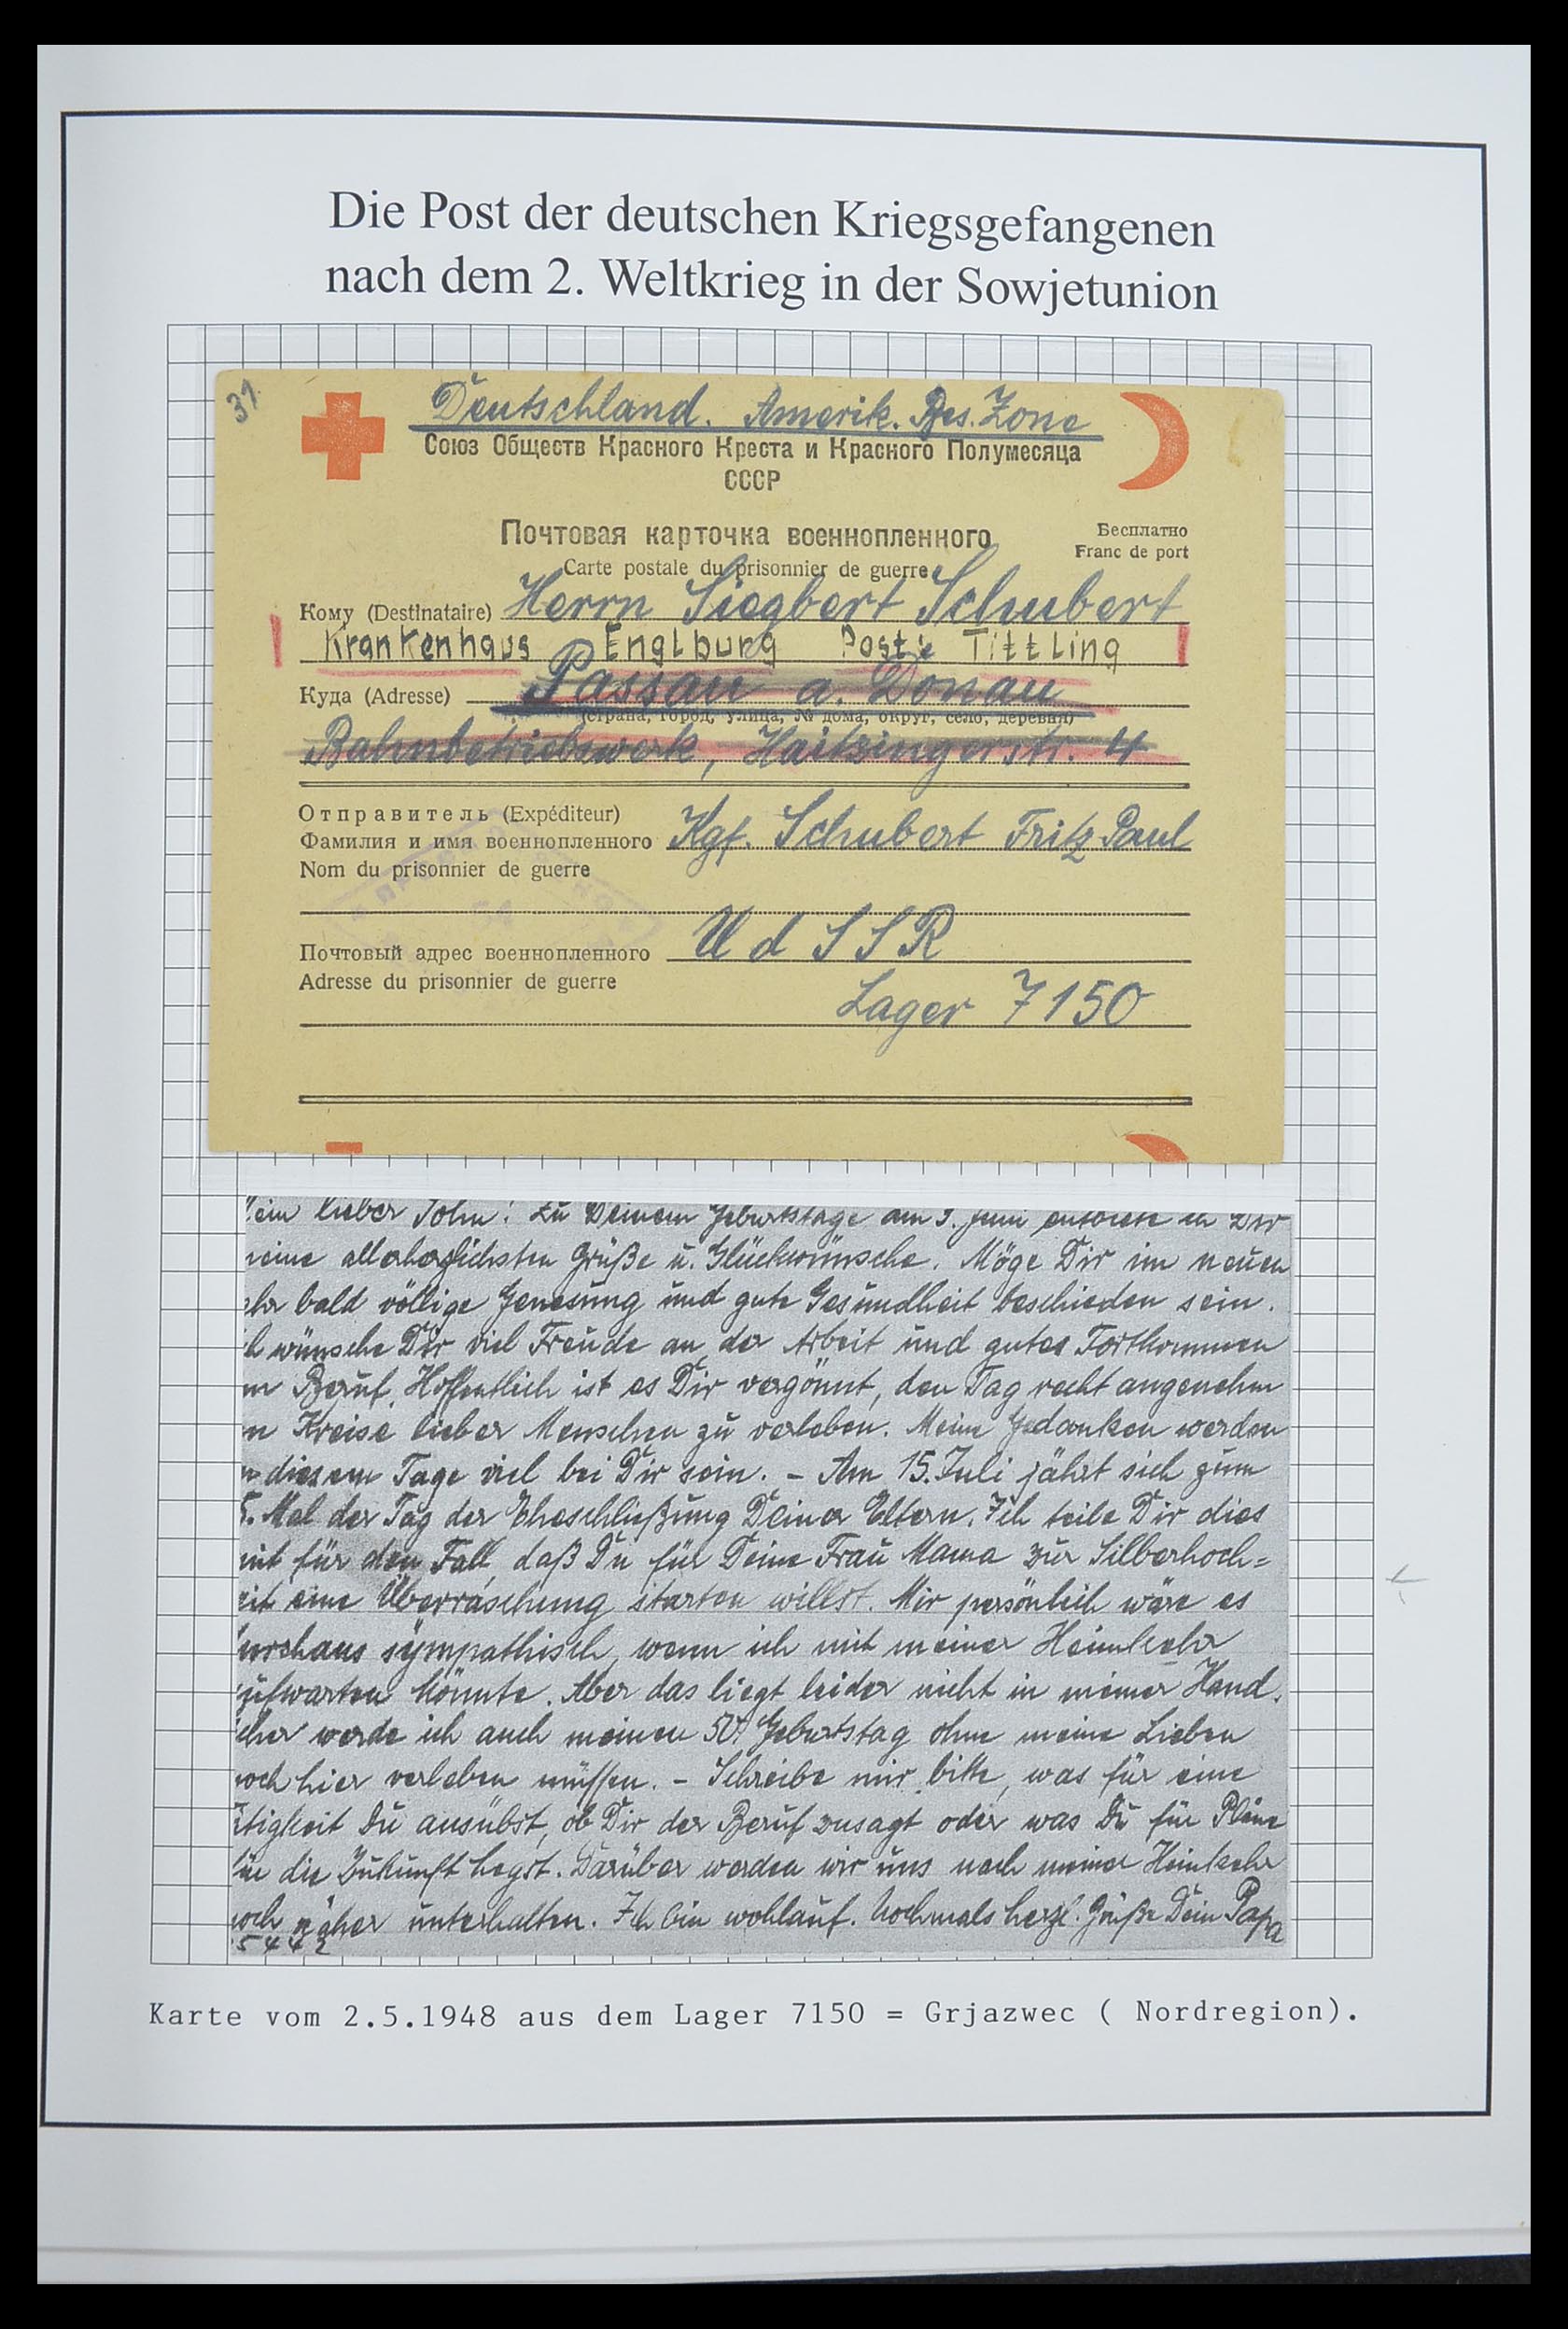 Die Post der deutschen Kriegsgefangenen
nach dem 2. Weltkrieg in der Sowjetunion
31
Deutschland. Amerik. Bes. Zone
Союз Обществ Красного Креста и Красного Полумесяца
СССР
Почтовая карточка военнопленного
Carte postale du prisonnier de guerre
Бесплатно
Franc de port
Кому (Destinataire) Herrn Siegbert Schubert
Krankenhaus Englburg Post: Tittling
Куда (Adresse) Passau a. Donau
(страна, город, улица, № дома, округ, село, деревня)
Bahnbetriebswerk, Haitzingerstr. 4
Отправитель (Expéditeur)
Фамилия и имя военнопленного Kgf. Schubert Fritz Paul
Nom du prisonnier de guerre
Почтовый адрес военнопленного U d S S R
Adresse du prisonnier de guerre
Lager 7150
ein lieber Sohn! Zu Deinem Geburtstage am 3. Juni entbiete ich Dir
eine allerherzlichsten Grüße u. Glückwünsche. Möge Dir im neuen
ahr bald völlige Genesung und gute Gesundheit beschieden sein.
ch wünsche Dir viel Freude an der Arbeit und gutes Fortkommen
m Beruf. Hoffentlich ist es Dir vergönnt, den Tag recht angenehm
m Kreise lieber Menschen zu verleben. Meine Gedanken werden
n diesem Tage viel bei Dir sein. – Am 15. Juli jährt sich zum
5. Mal der Tag der Eheschließung Deiner Eltern. Ich teile Dir dies
mit für den Fall, daß Du für Deine Frau Mama zur Silberhoch=
eit eine Überraschung starten willst. Mir persönlich wäre es
urchaus sympathisch, wenn ich mit meiner Heimkehr
ufwarten könnte. Aber das liegt leider nicht in meiner Hand.
icher werde ich auch meinen 50. Geburtstag ohne meine Lieben
noch hier verleben müssen. – Schreibe mir bitte, was für eine
ätigkeit Du ausübst, ob Dir der Beruf zusagt oder was Du für Pläne
für die Zukunft hegst. Darüber werden wir uns nach meiner Heimkehr
noch näher unterhalten. Ich bin wohlauf. Nochmals herzl. Grüße Dein Papa
5442
Karte vom 2.5.1948 aus dem Lager 7150 = Grjazwec ( Nordregion).